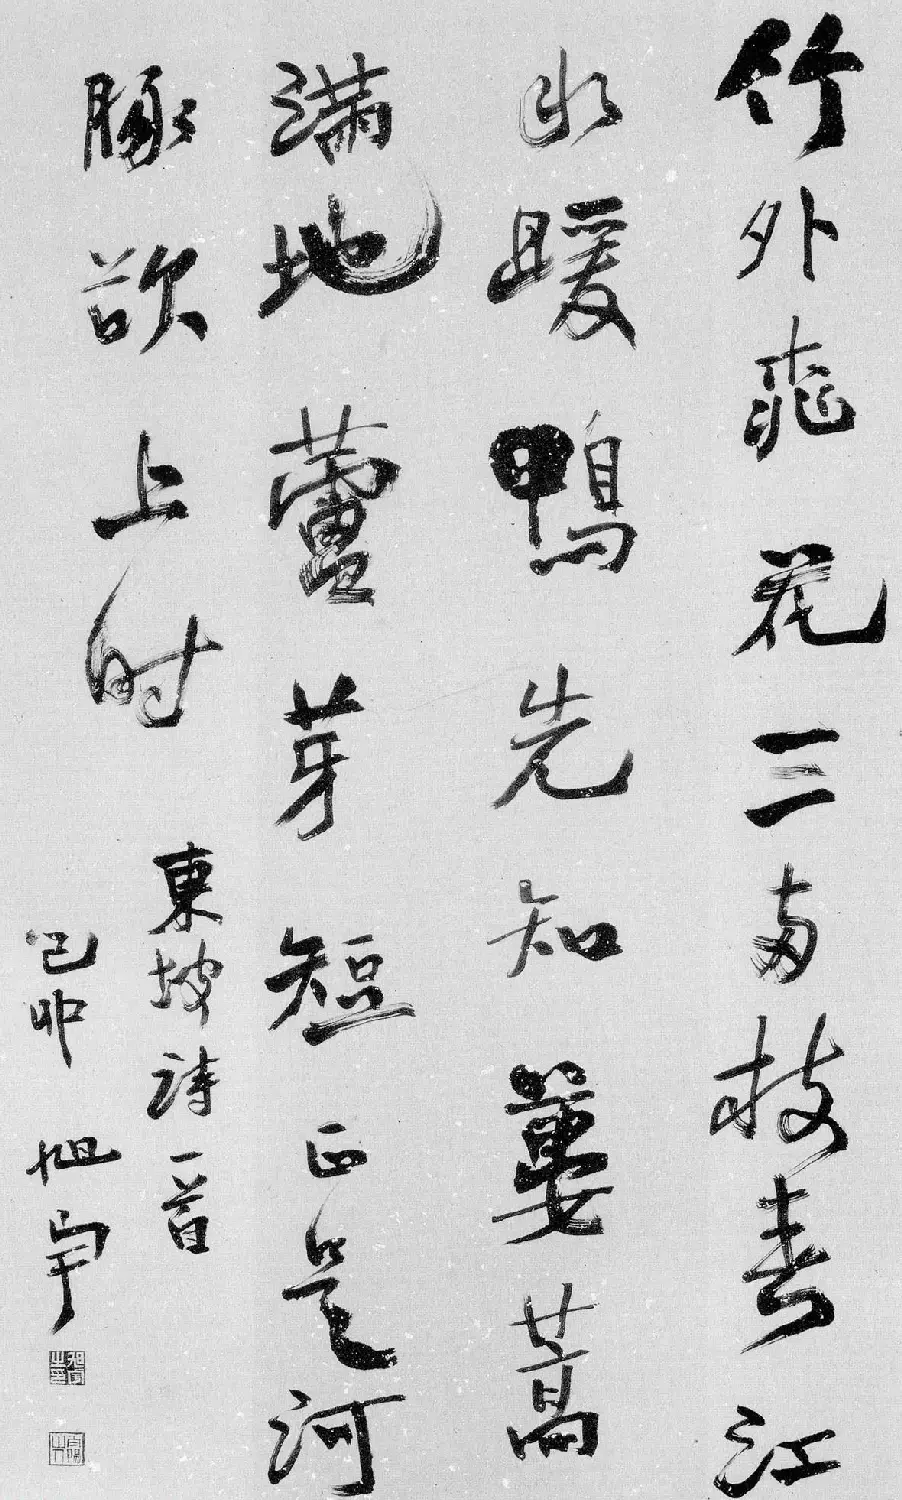 竹外桃花三两枝春江
水暖鸭先知蒌蒿
满地蘆芽短正是河
豚欲上时
東坡诗一首
己卯旭宇